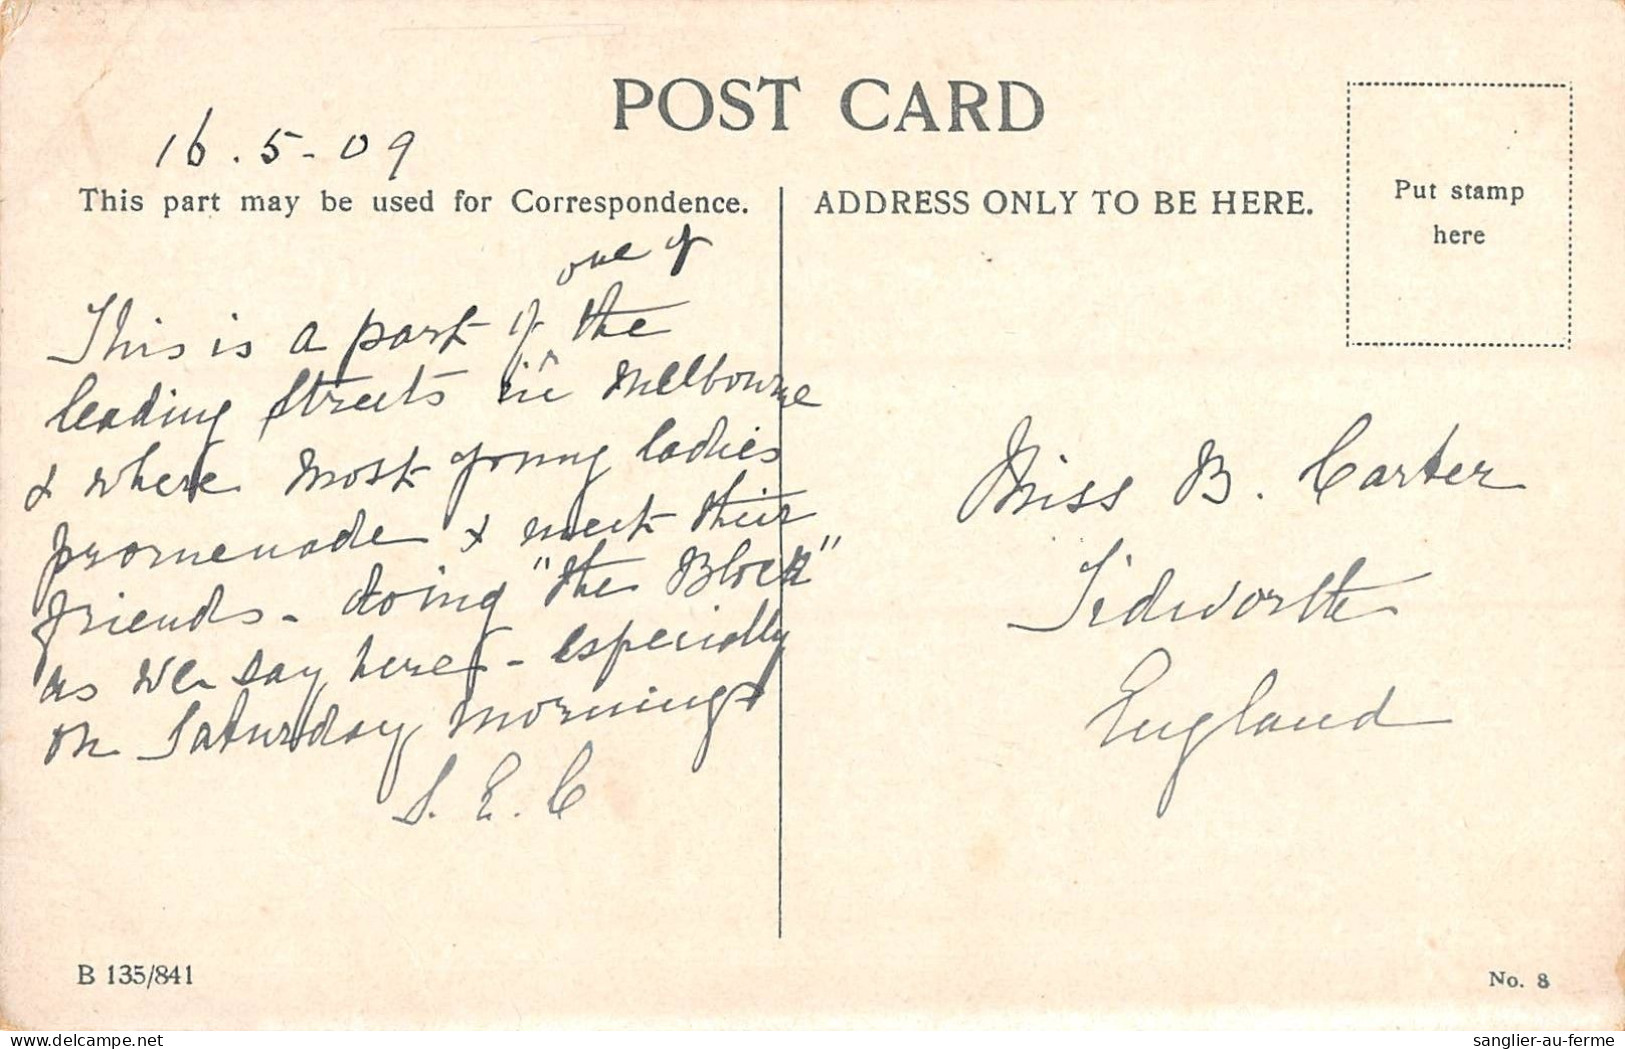 POST CARD
16.5-09
This part may be used for Correspondence.
ADDRESS ONLY TO BE HERE.
Put stamp
here
one of
This is a part of ^ the
leading Streets in Melbourne
& where most young ladies
promenade & meet their
friends - doing "the Block"
as we say here - especially
on Saturday mornings
S. E. C
Miss B. Carter
Tidworth
England
B 135/841
No. 8
delcampe.net
sanglier-au-ferme